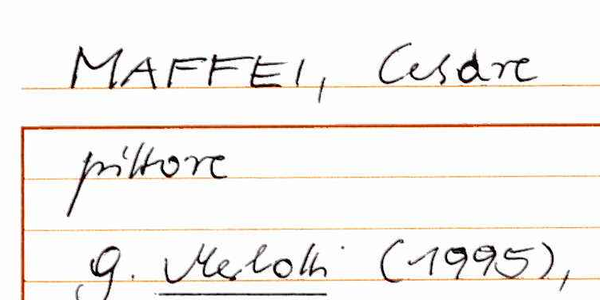 MAFFEI, Cesare
pittore
G. Merlotti (1995),